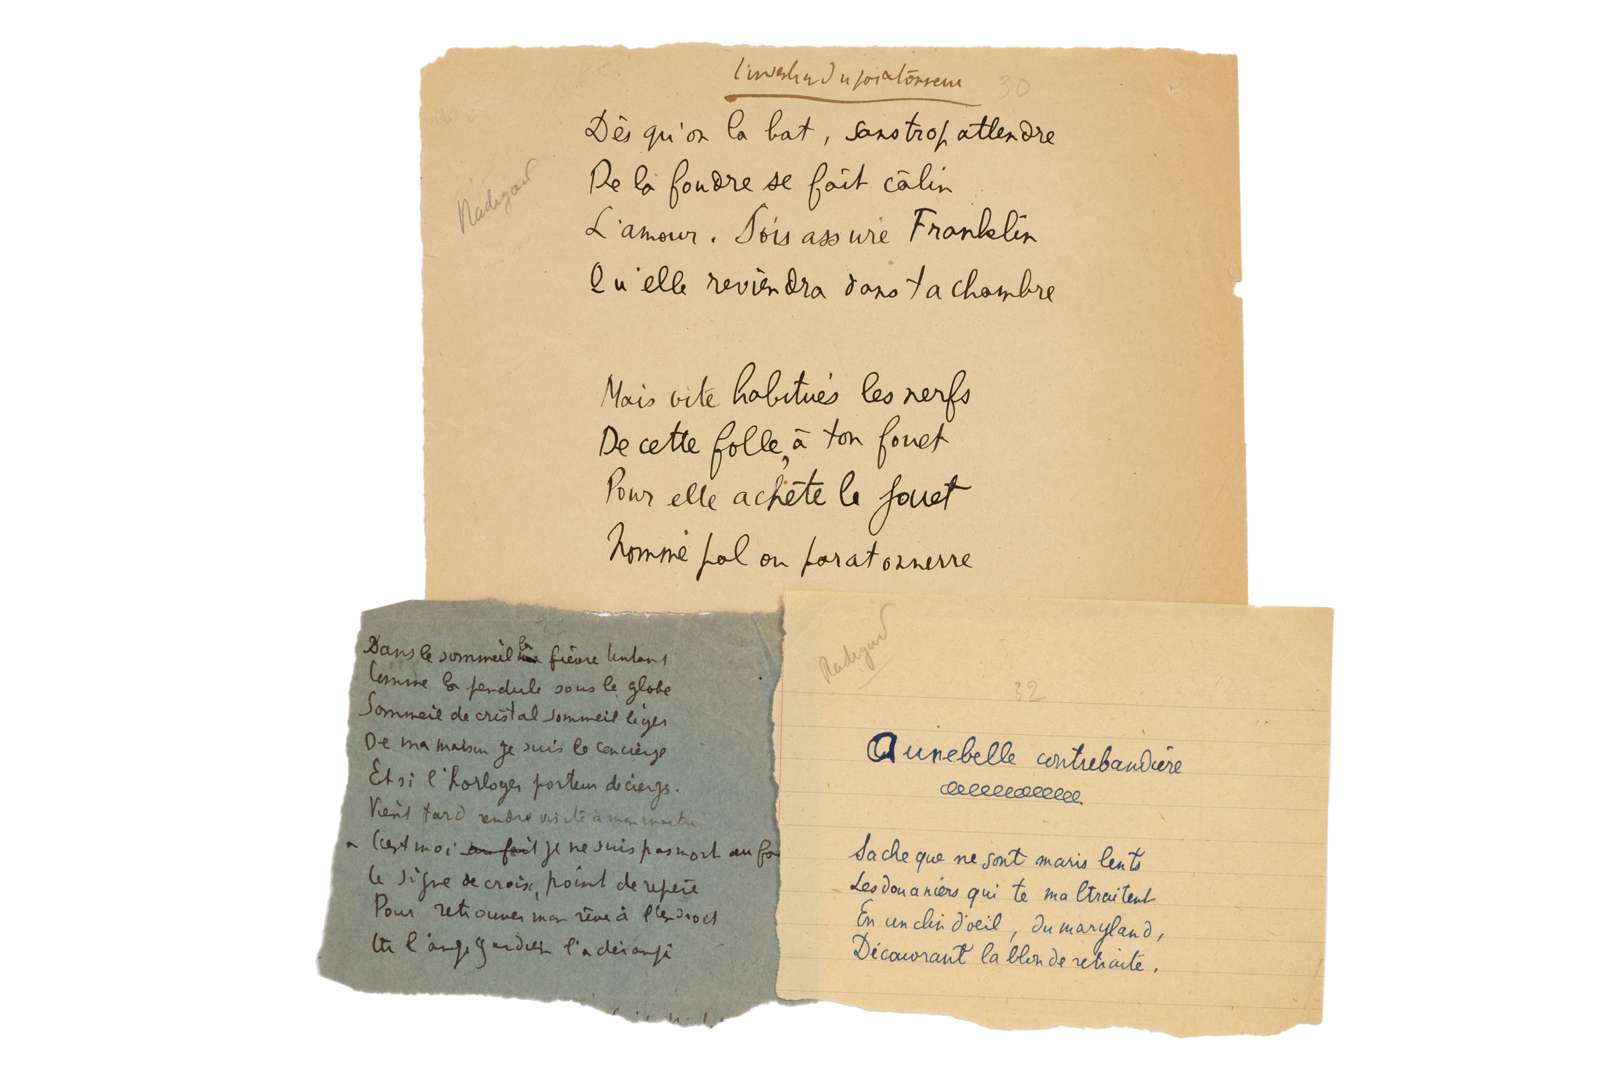 L'inventeur du paratonnerre
30
Radiguet
Dès qu'on la bat, sans trop attendre
De la foudre se fait câlin
L'amour. Sois assuré Franklin
Qu'elle reviendra dans ta chambre
Mais vite habitués les nerfs
De cette folle, à ton fouet
Pour elle achète le jouet
Nommé pal ou paratonnerre
Dans le sommeil la fièvre
Comme la pendule sous le globe
Sommeil de cristal sommeil léger
De ma maison je suis le concierge
Et si l'horloger porteur de cierge.
Vient tard rendre visite à mon
C'est moi au fait je ne suis pas mort au
Le signe de croix, point de repère
Pour retrouver mon rêve à l'endroit
Où l'ange gardien l'a dérangé
Radiguet
32
A une belle contrebandière
Sache que ne sont maris lents
Les douaniers qui te maltraitent
En un clin d'oeil, du maryland,
Découvrant la blonde retraite.